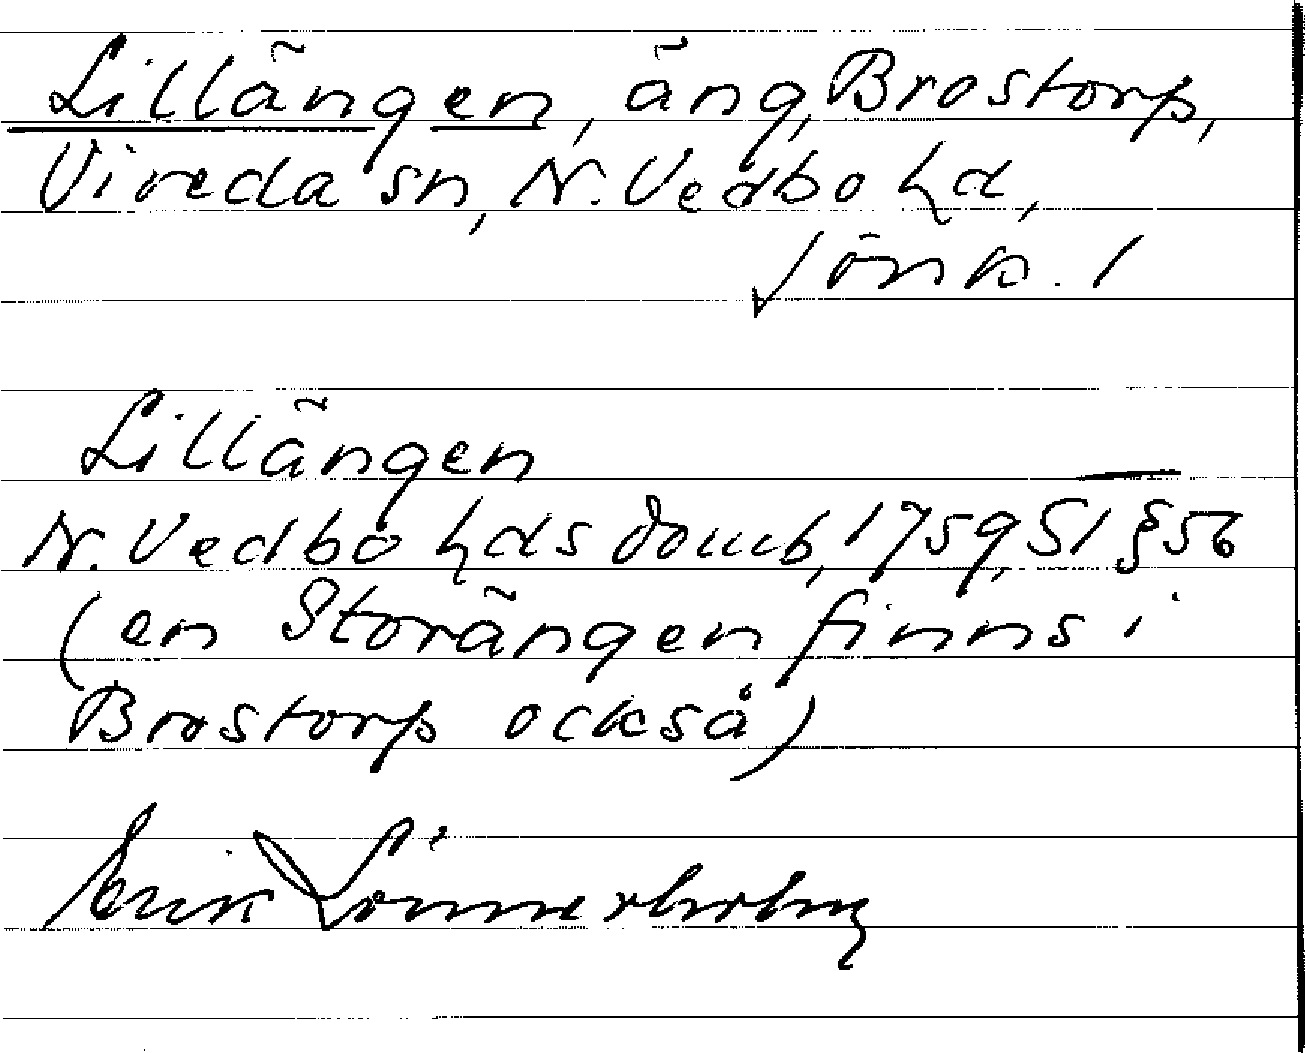 Lillängen, äng, Brostorp,
Vireda sn, N. Vedbo hd,
Jönk. l
Lillängen
N. Vedbo hds domb, 1759, S1 §56
(en Storängen finns i
Brostorp också)
Erik Lönnerholm